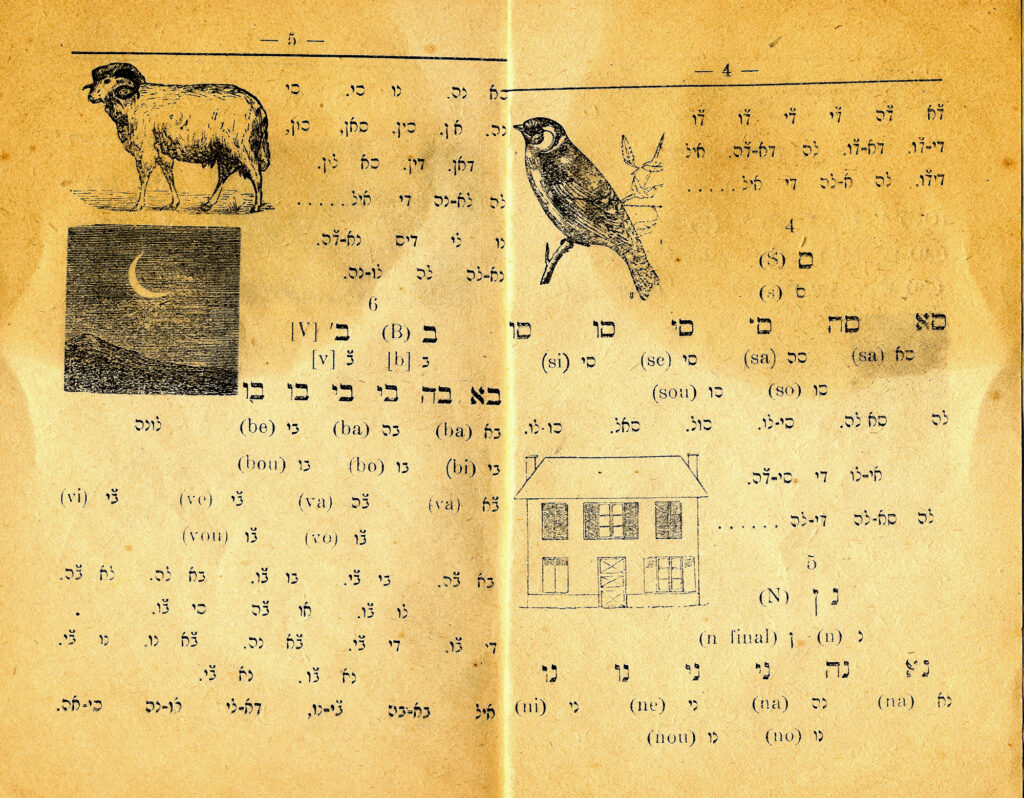 — 4 —
ד̆א ד̆ה ד̆י ד̆י ד̆ו ד̆ו
די-ד̆ו. דא-ד̆ו. לה דא-ד̆ה. איל
דיד̆ו. לה א-לה די איל......
4
ס (S)
ס (s)
סא סה סי סי סו סו
סא (sa) סה (sa) סי (se) סי (si)
סו (so) סו (sou)
לה סא לה. סי-לו. סול. סאל. סו-לו.
אי-לו די סי-ד̆ה.
לה סא-לה די-לה ......
5
נ ן (N)
נ (n) ן (n final)
נא נה ני ני נו נו
נא (na) נה (na) ני (ne) ני (ni)
נו (no) נו (nou)
— 5 —
סא נה. נו סי. סי
נה. סין. סאן, סון,
דאן. דין. סא לין.
לה לא-נה די איל.....
נו לי דיס נא-ד̆ה.
נא-לה לה לו-נה.
6
ב (B) ב׳ [V]
ב [b] ב̆ [v]
בא בה בי בי בו בו
בא (ba) בה (ba) בי (be) לונה
בי (bi) בו (bo) בו (bou)
ב̆א (va) ב̆ה (va) ב̆י (ve) ב̆י (vi)
ב̆ו (vo) ב̆ו (vou)
בא ב̆ה. בי ב̆י. בו ב̆ו. בא לה. לא ב̆ה.
לו ב̆ו. או ב̆ה סי ב̆ו.
די ב̆ו. די ב̆י. ב̆א נה. ב̆א נו. נו ב̆י.
נא ב̆ו. נא ב̆י.
איל ב̆י-נו, דא-לי או-נה סי-אה.